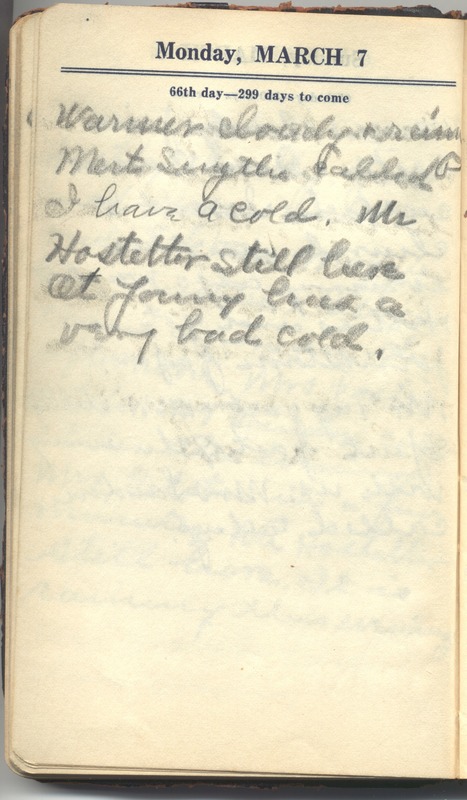 Monday, MARCH 7
66th day—299 days to come
Warmer cloudy
Mert Smythe called
I have a cold. Mr
Hostetter still here
At Young has a
very bad cold.